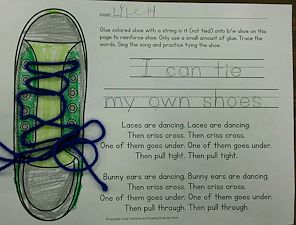 NAME Lyle 14
Glue colored shoe with a string in it (not tied) onto b/w shoe on
this page to reinforce shoe. Only use a small amount of glue. Trace the
words. Sing the song and practice tying the shoe.
I can tie
my own shoes.
Laces are dancing. Laces are dancing.
Then criss cross. Then criss cross.
One of them goes under. One of them goes under.
Then pull tight. Then pull tight.
Bunny ears are dancing. Bunny ears are dancing.
Then criss cross. Then criss cross.
One of them goes under. One of them goes under.
Then pull through. Then pull through.